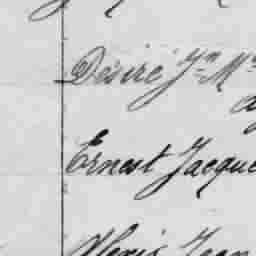 Désiré Jn Mie
Ernest Jacque
Alexis Jean